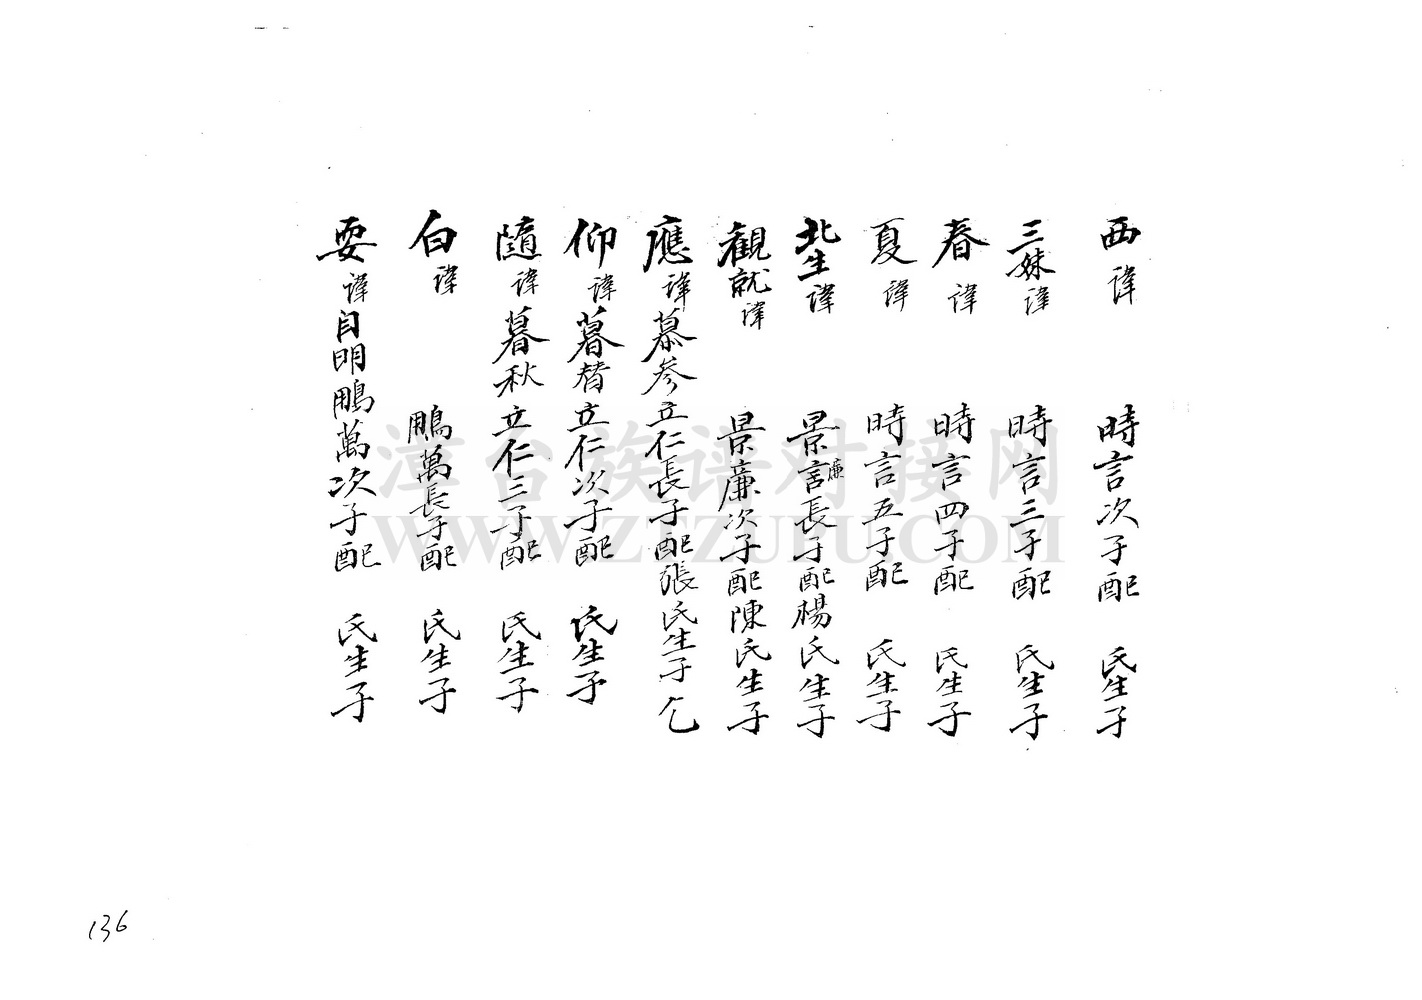 西諱 時言次子配 氏生子
三妹諱 時言三子配 氏生子
春諱 時言四子配 氏生子
夏諱 時言五子配 氏生子
北生諱 景言廉長子配楊氏生子
觀就諱 景廉次子配陳氏生子
應諱慕參立仁長子配張氏生子乞
仰諱暮替立仁次子配 氏生子
隨諱暮秋立仁三子配 氏生子
白諱 鵬萬長子配 氏生子
耍諱自明鵬萬次子配 氏生子
漳台族谱对接网
WWW.ZTZUPU.COM
136